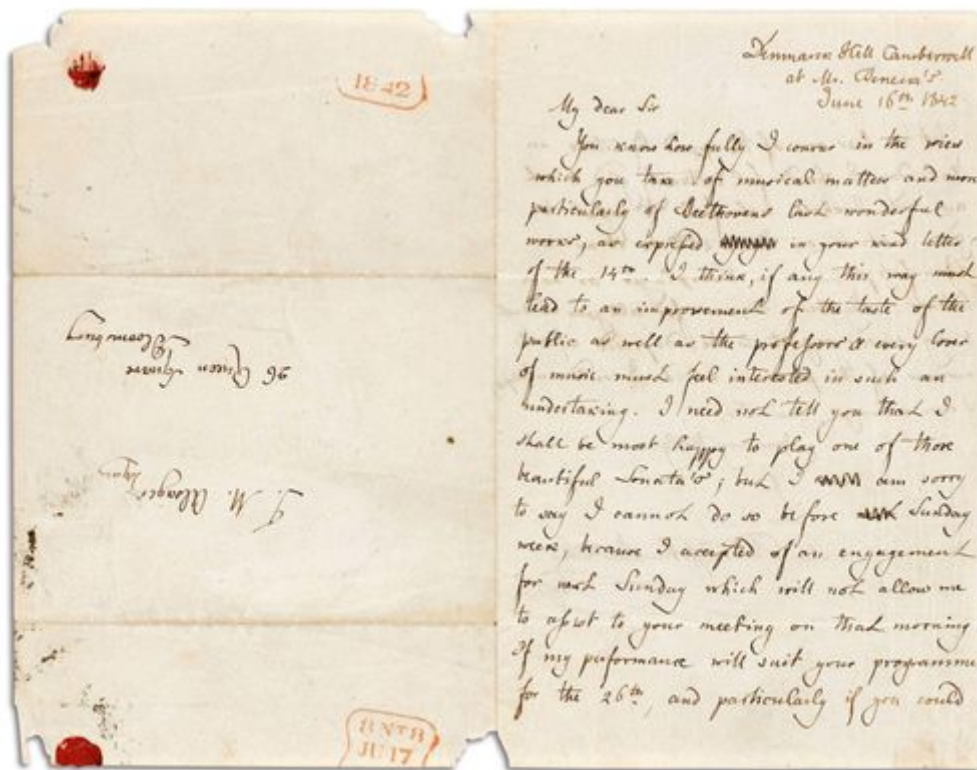 1842
26 Queen Square
Bloomsbury
T. M. Alsager
8 NT 8
JU 17
Denmark Hill Camberwell
at Mr. Beneckes
June 16th 1842
My dear Sir
You know how fully I concur in the view
which you take of musical matters and more
particularly of Beethovens last wonderful
works, as expressed in your kind letter
of the 14th. I think, if any this way must
lead to an improvement of the taste of the
public as well as the professors & every lover
of music must feel interested in such an
undertaking. I need not tell you that I
shall be most happy to play one of those
beautiful Sonata's; but I am sorry
to say I cannot do so before Sunday
week, because I accepted of an engagement
for next Sunday which will not allow me
to assist to your meeting on that morning
If my performance will suit your programme
for the 26th, and particularly if you could